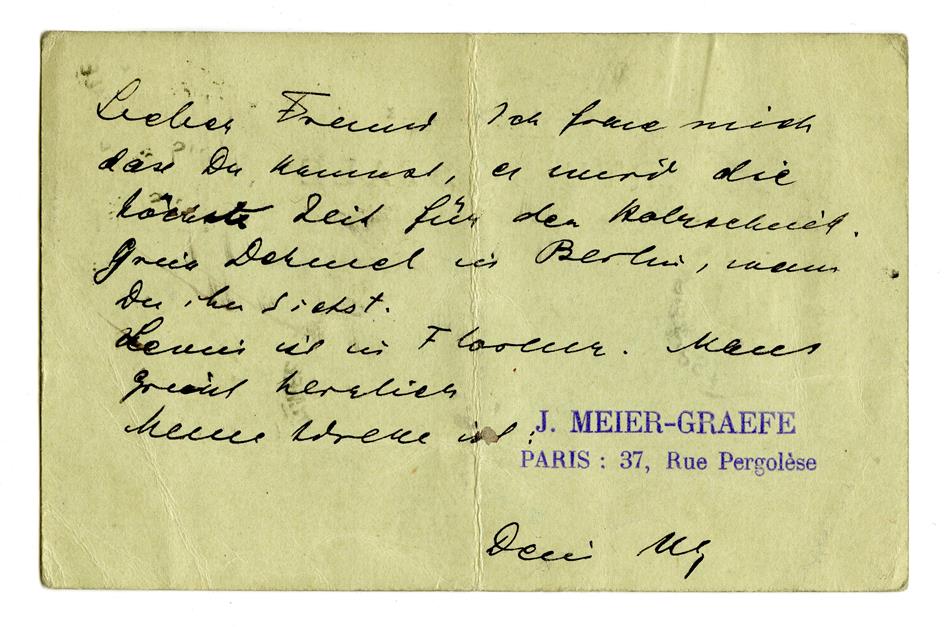 Lieber Freund Ich freue mich
dass Du kommst, es wird die
höchste Zeit für den Holzschnitt.
Grüss Dehmel in Berlin, wenn
Du ihn siehst.
ist in Florenz.
grüsst herzlich
Meine Adresse ist:
J. MEIER-GRAEFE
PARIS : 37, Rue Pergolèse
Dein MG